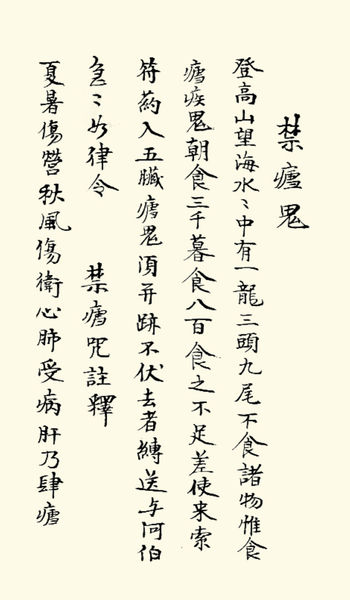 禁瘧鬼
登高山望海水〻中有一龍三頭九尾不食諸物惟食
瘧疾鬼朝食三千暮食八百食之不足差使来索
符葯入五臟瘧鬼須并跡不伏去者縛送与河伯
急〻如律令　禁瘧咒註釋
夏暑傷營秋風傷衛心肺受病肝乃肆瘧